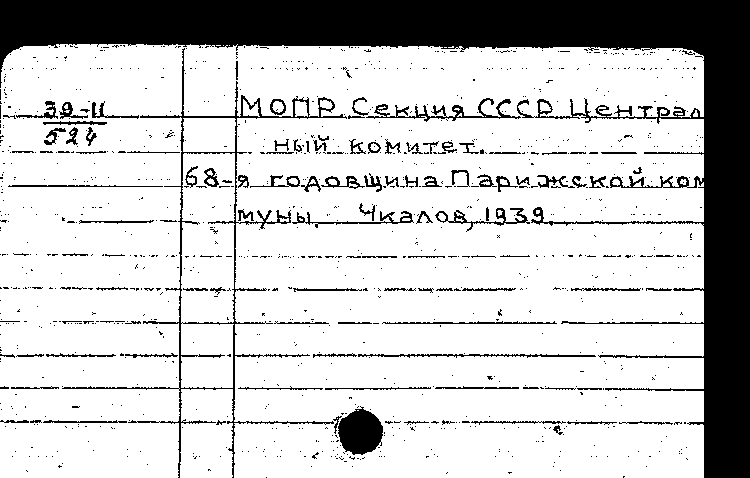 39-11
524
МОПР. Секция СССР. Централ
ный комитет.
68-я годовщина Парижской ком
муны. Чкалов, 1939.